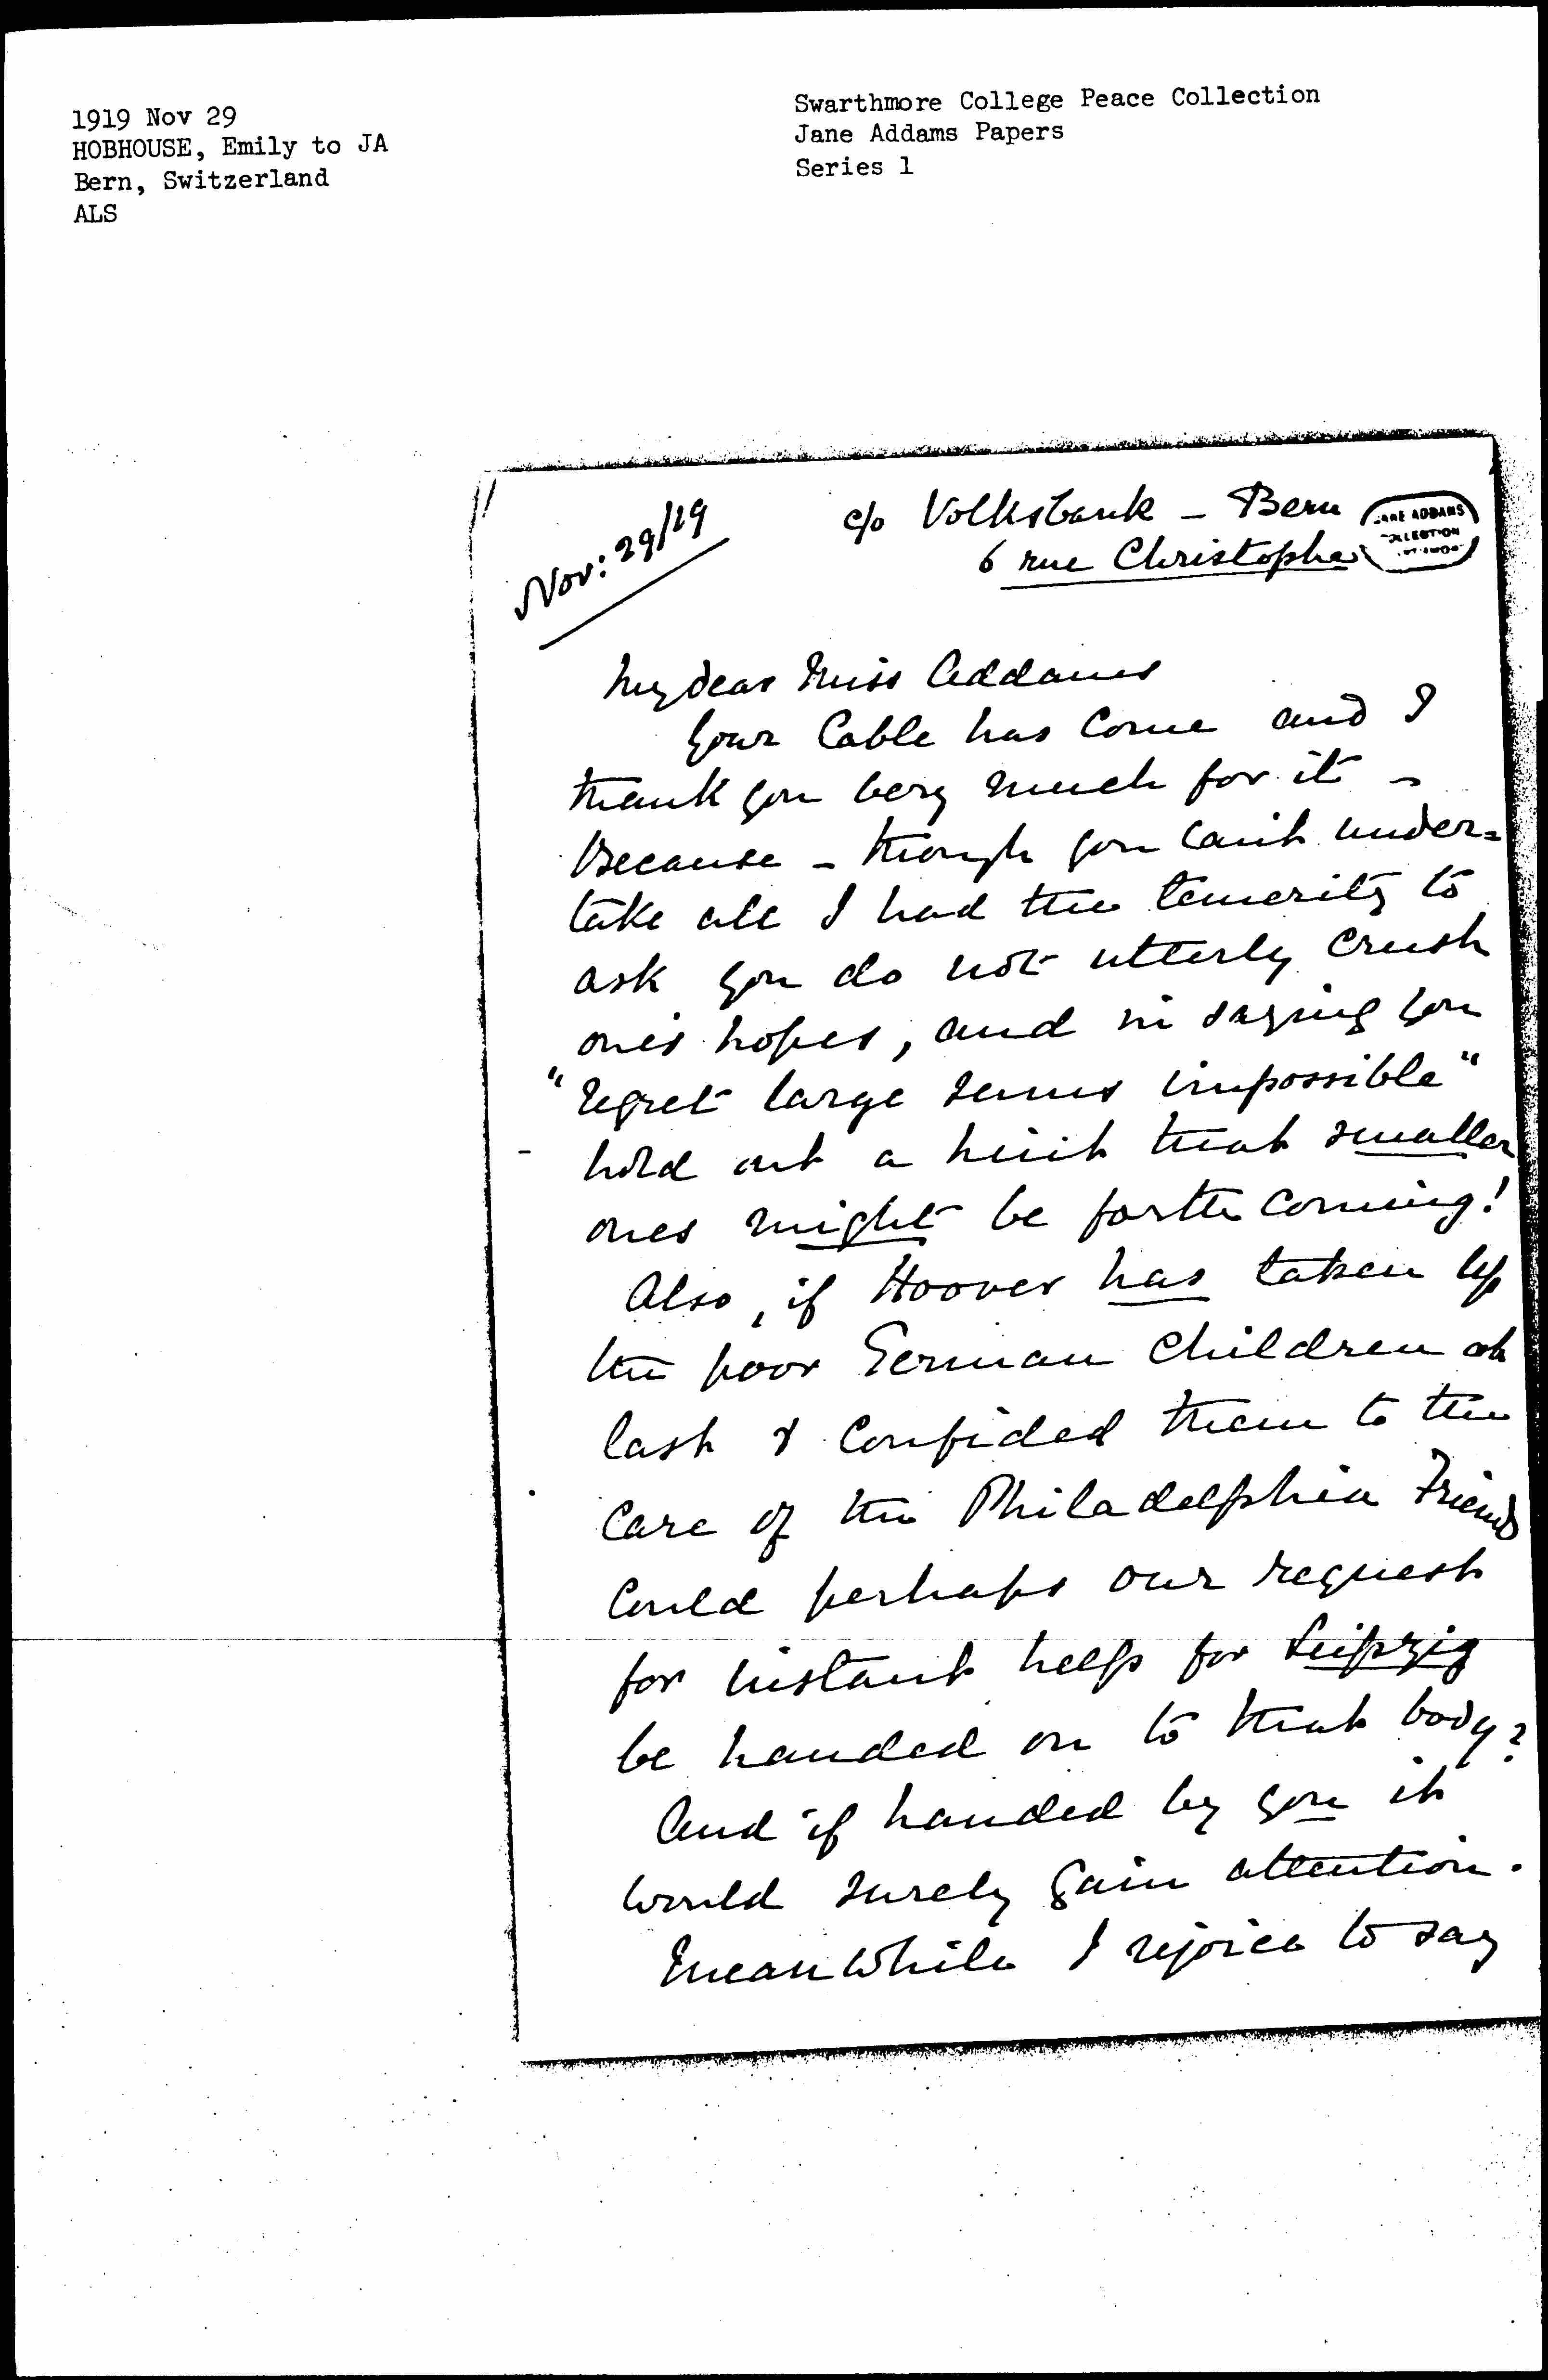 1919 Nov 29
HOBHOUSE, Emily to JA
Bern, Switzerland
ALS
Swarthmore College Peace Collection
Jane Addams Papers
Series 1
Nov: 29/19
c/o Volksbank - Bern
6 rue Christophe
JANE ADDAMS
COLLECTION
My dear Miss Addams
Your Cable has come and I
thank you very much for it -
because - though you can't under=
take all I had the temerity to
ask you do not utterly crush
one's hopes, and in saying you
"regret large sums impossible"
- hold out a hint that smaller
ones might be forthcoming!
Also, if Hoover has taken up
the poor German children at
last & confided them to the
care of the Philadelphia Friends
could perhaps our request
for instant help for Leipzig
be handed on to that body?
And if handed by you it
would surely gain attention.
Meanwhile I rejoice to say